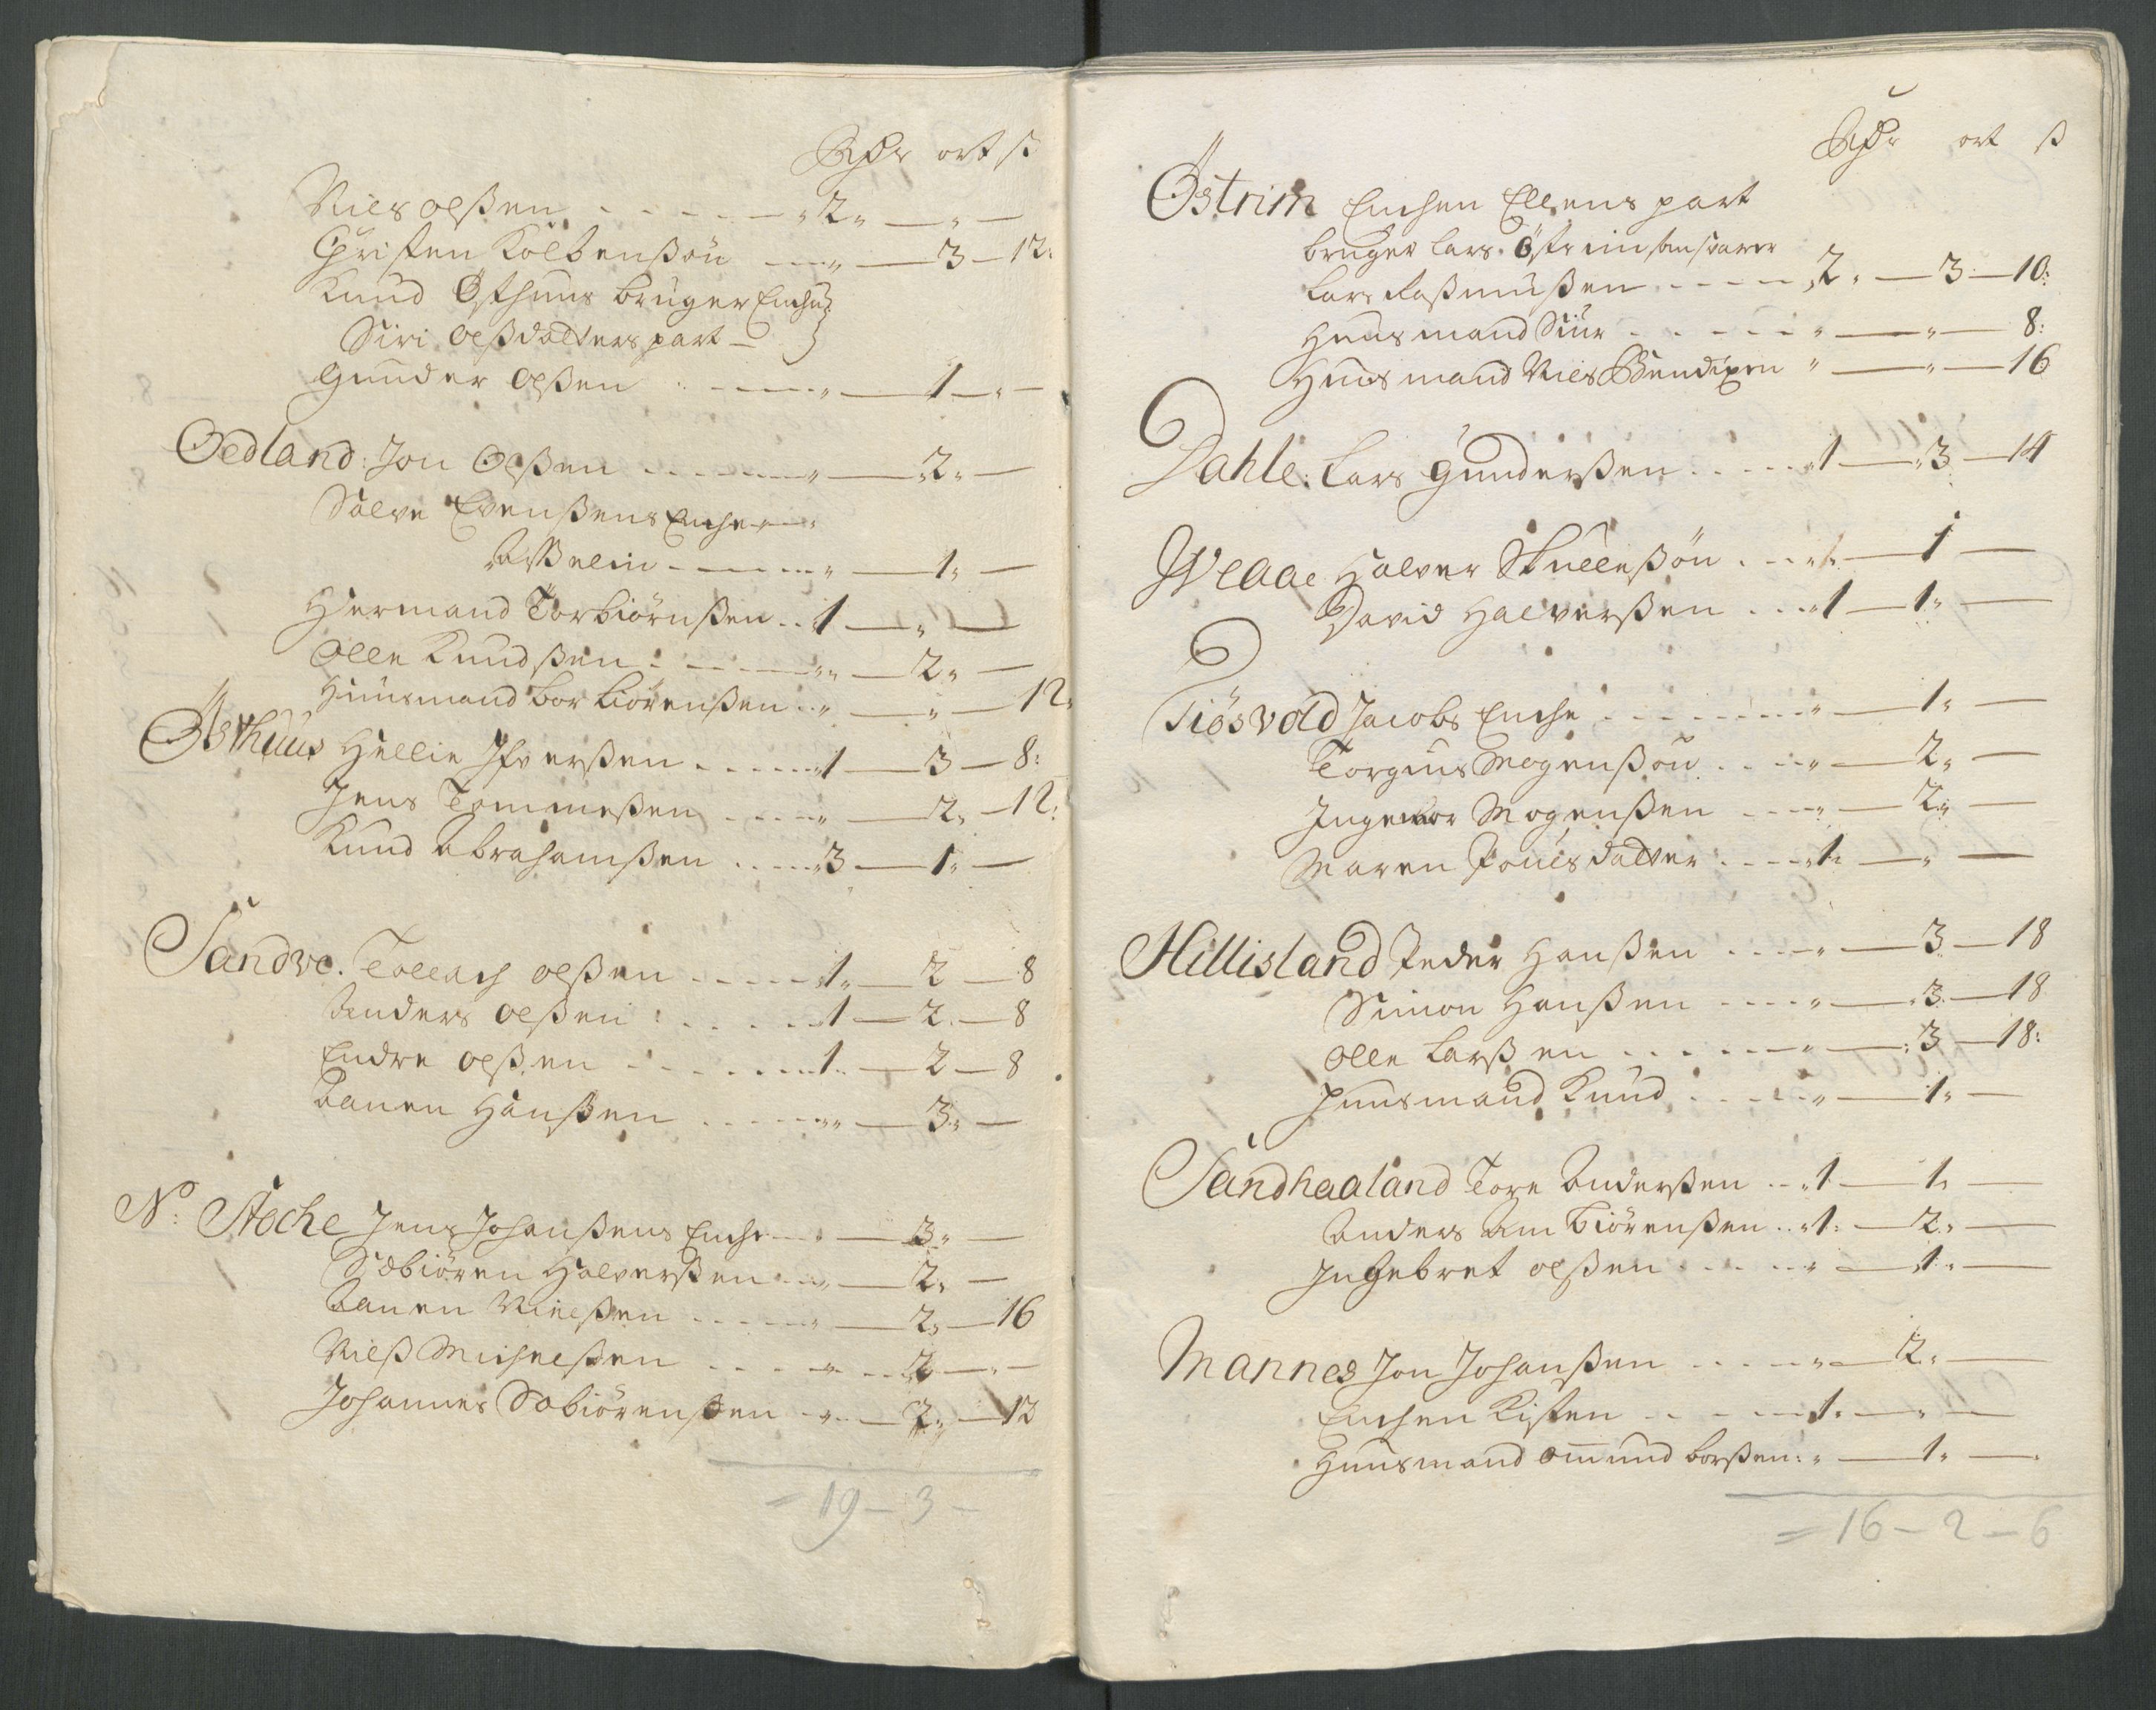 Rdr ort ß
Niels olßen - - - - - " 2 " — " —
Christen Kolbenßøn - - - " — 3 — 12:
Knud Østhuus bruger Enchen
Siri olßdatters part —
Gunder olßen - - - - " — 1 — " —
Oedland: Jon Olßen - - - - " — 2 " —
Salve Evenßens Enche - - "
Aßelin - - - - " — 1 " —
Hermand Torbiørnßen - - 1 — " —
Olle Knudßen - - - - " — 2 " —
Huusmand bor biørenßen - - " — " — 12 "
Østhuus Hellie Ifverßen - - - - 1 — 3 — 8:
Jens Tommeßen - - - - " — 2 " — 12:
Knud Abrahamßen - - - - 3 — 1 " —
Sandve. Tollach olßen - - - - 1 " — 2 — 8
Anders olßen : - - - - 1 — 2 " — 8
Endre olßen - - - - - 1 " — 2 — 8
Aanen Hanßen - - - - " — 3 " —
No: Stoche Jens Johanßens Enche - - " — 3 " —
Søbiøren Halverßen - - " — 2 " —
Aanen Nielßen - - - - " — 2 " — 16
Nielß Michelßen - - - - " — 2 — " —
Johannes Søbiørenßen - - " — 2 " — 12
= 19 — 3 —
Rdr ort ß
Østrim Enchen Ellens part
bruger Lars Østrim
Lars Raßmußen - - - - " 2 " — 3 — 10:
Huusmand Siur - - - - - " — " — 8:
Huusmand Niels Bendixen " — " — 16
Dahle: Lars Gunderßen - - - - 1 — " 3 — 14
Weaae Halver Skuelleßøn - - - " 1 " — 1 —
David Halverßen - - - " 1 — 1 " —
Tiøsvold Jacobs Enche - - - - - " — 1 " —
Torgiuls Mogenßøn - - - " — 2 " —
Ingebor Mogenßen - - - " — 2 " —
Maren Povelsdatter - - - - 1 " — " —
Hillisland Peder Hanßen - - - - " — 3 — 18
Simon Hanßen - - - - " — 3 — 18
Olle Larßen - - - - - " — 3 — 18:
Huusmand Knud - - - - " — 1 " —
Sandhaaland Tore Anderßen - - " 1 — 1 " —
Anders Ambiørenßen - - " 1 : — 2 " —
Ingebret olßen - - - - " — 1 " —
Mannes Jon Johanßen - - - - " — 2 " —
Enchen Kisten - - - - 1 " — " —
Huusmand Omund Borßen : " — 1 " —
= 16 — 2 — 6